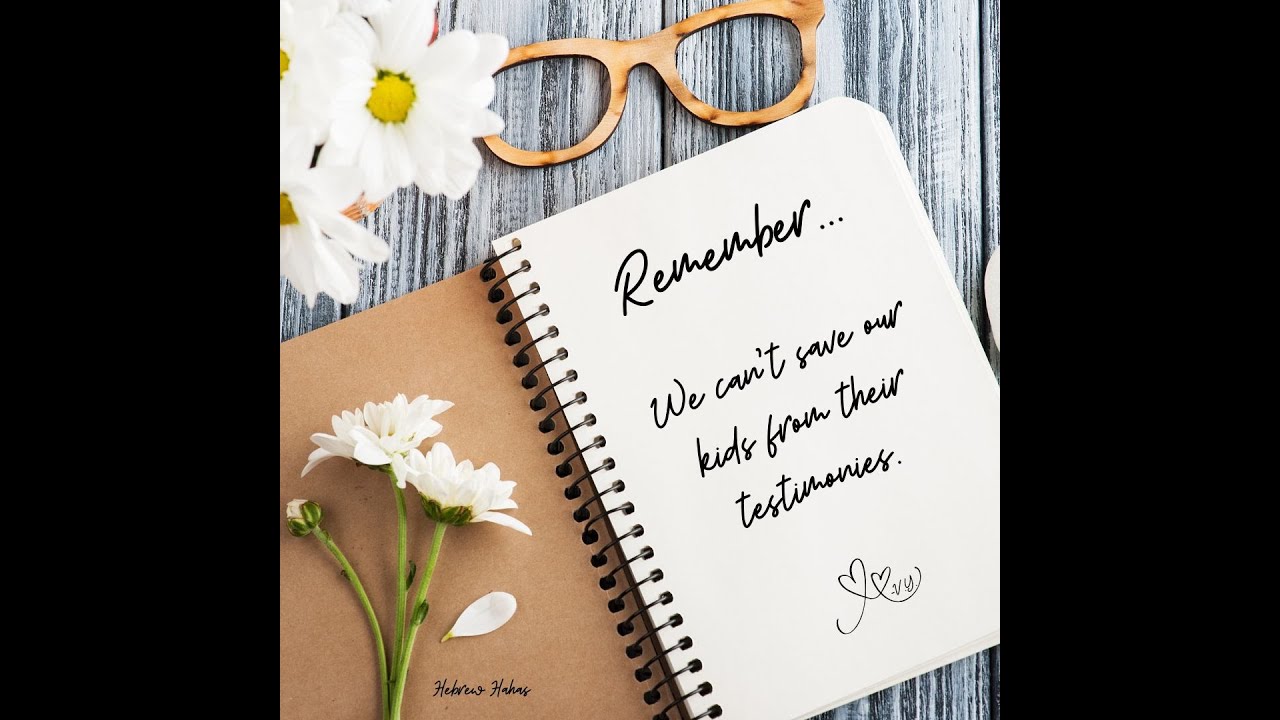 Remember...
We can't save our
kids from their
testimonies.
-V.Y.
Hebrew Hahas